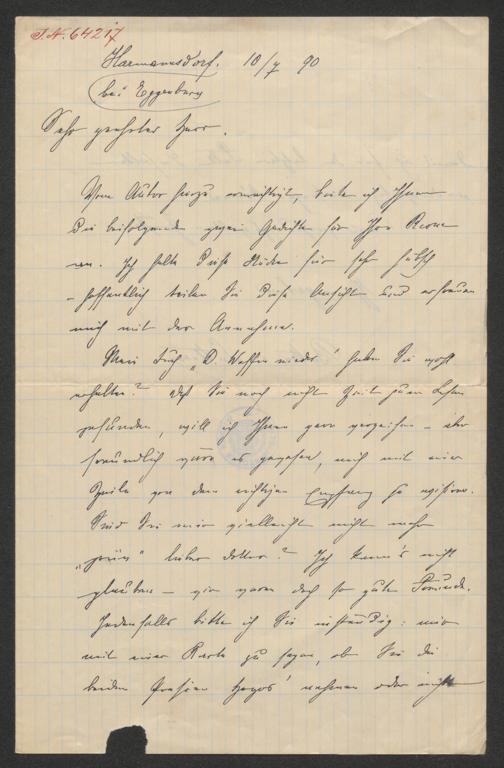 I.N. 64217
Harmannsdorf. 10/7 90
bei Eggenburg
Sehr geehrter Herr.
Vom Autor hiezu ermächtigt, biete ich Ihnen
die beifolgenden Gedichte für Ihre Revue
an. Ich halte diese Stücke für sehr hübsch
– hoffentlich teilen Sie diese Ansicht und erfreuen
mich mit der Annahme.
Mein Buch „D Waffen nieder" haben Sie wohl
erhalten? daß Sie noch nicht Zeit zum Lesen
gefunden, will ich Ihnen gern verzeihen – aber
freundlich wäre es gewesen, mich mit einer
Zeile von dem richtigen Empfang zu avisiren.
Sind Sie mir vielleicht nicht mehr
„grün" lieber Doktor? Ich kann's nicht
glauben – wir waren doch so gute Freunde.
Jedenfalls bitte ich Sie inständig: mir
mit einer Karte zu sagen, ob Sie die
beiden Poesien nehmen oder nicht